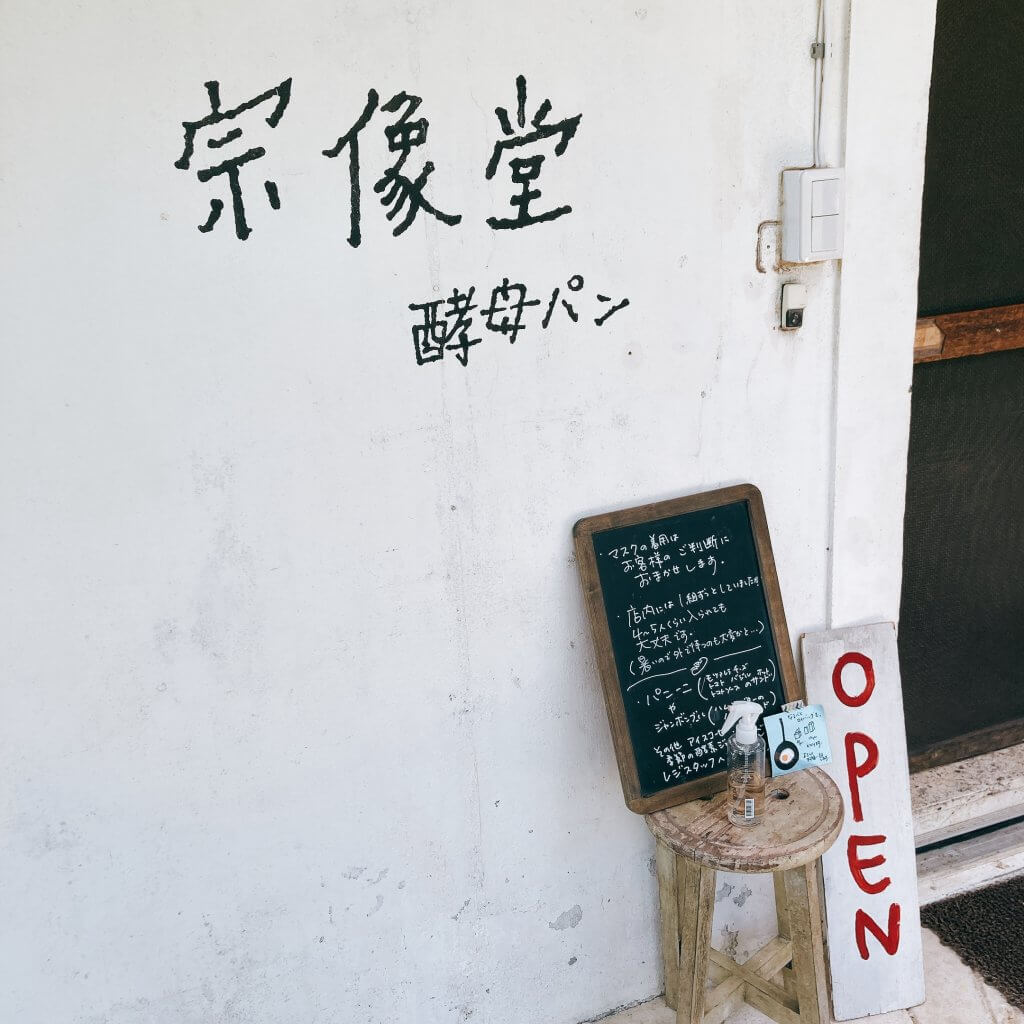 宗像堂
酵母パン
・マスクの着用は
お客様の ご判断に
おまかせします。
・店内には1組ずつとしていましたが
4〜5人くらい入られても
大丈夫です。
(暑いので外で待つのも大変かと…)
・パニーニ(モッツァレラチーズ
トマト バジル
トマトソース のサンド
や
ジャンボンブレ(ハム
その他 アイスコ
季節の酵素ジ
レジスタッフへ
OPEN